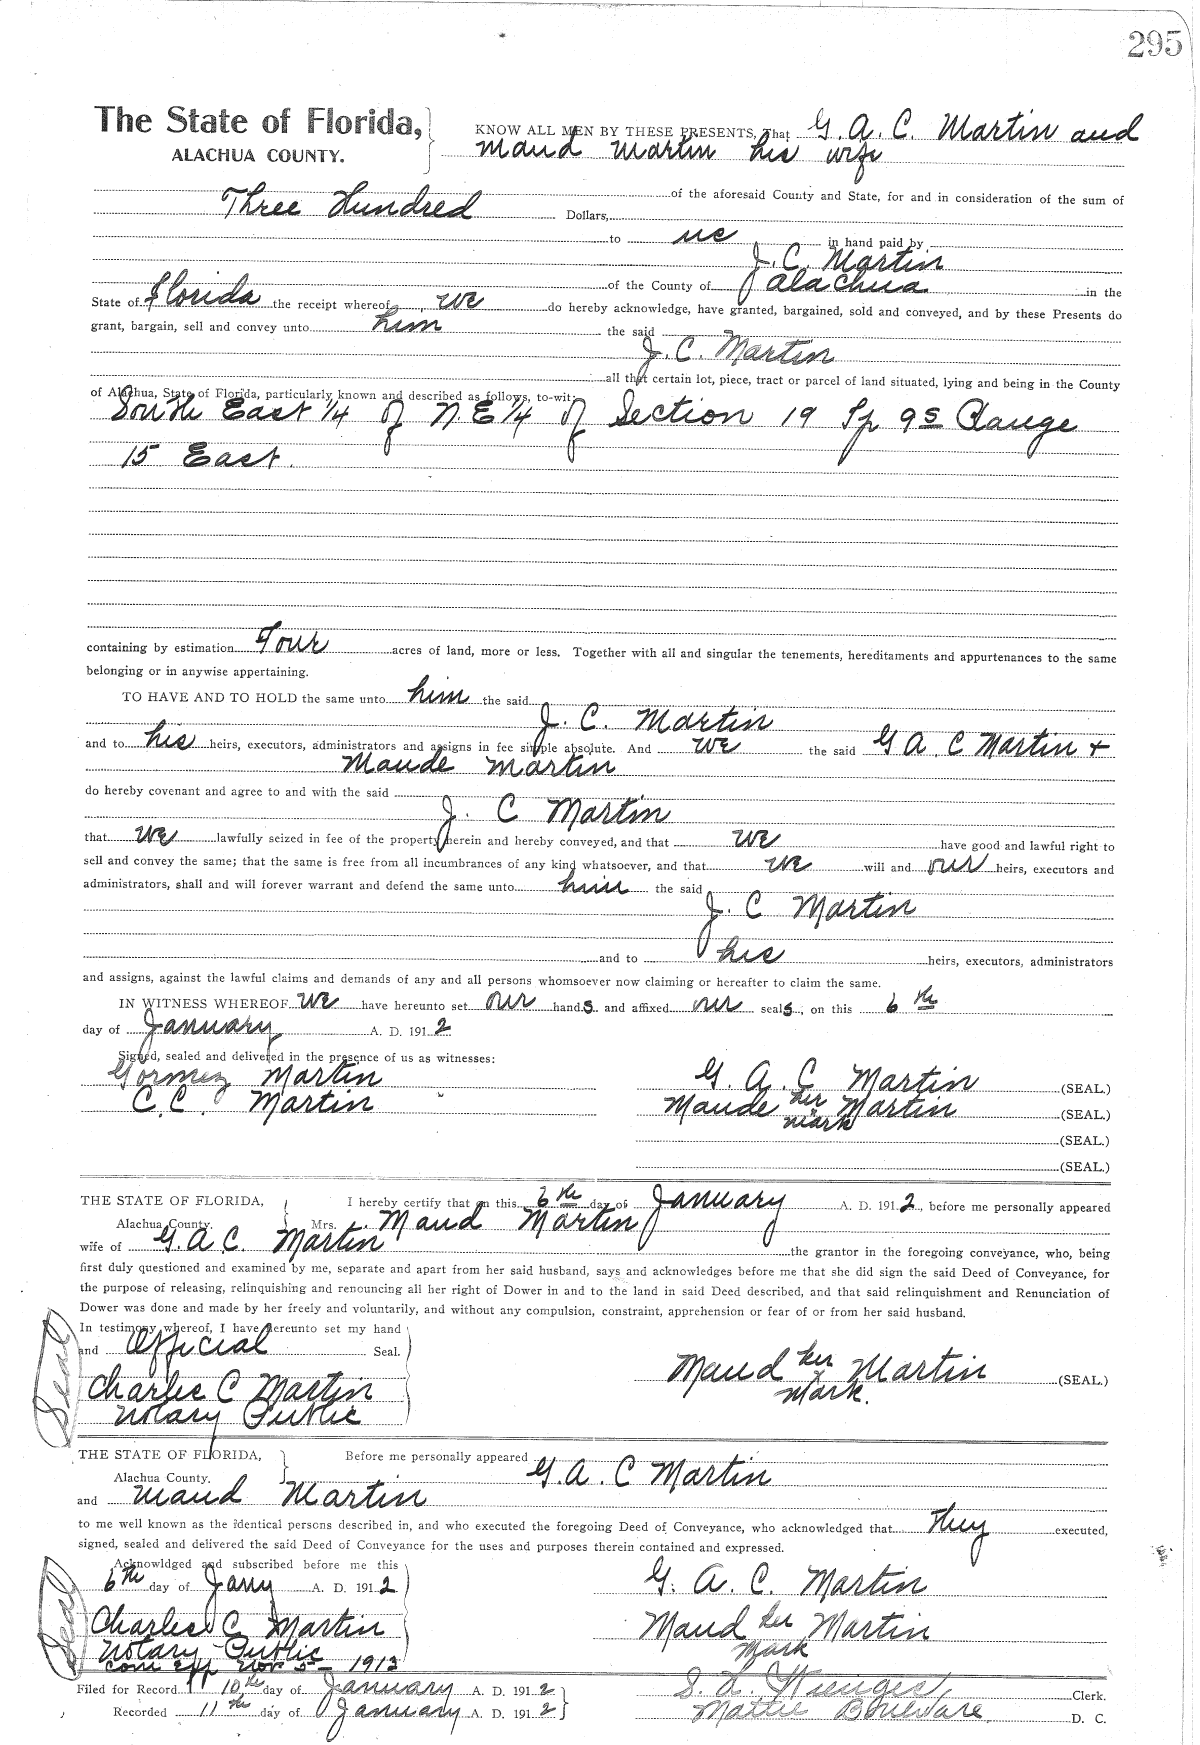 295
The State of Florida,
ALACHUA COUNTY.
KNOW ALL MEN BY THESE PRESENTS, That G. A. C. Martin and
Maud Martin his wife
of the aforesaid County and State, for and in consideration of the sum of
Three Hundred Dollars,
to us in hand paid by
J. C. Martin
of the County of Alachua in the
State of Florida the receipt whereof we do hereby acknowledge, have granted, bargained, sold and conveyed, and by these Presents do
grant, bargain, sell and convey unto him the said
J. C. Martin
all that certain lot, piece, tract or parcel of land situated, lying and being in the County
of Alachua, State of Florida, particularly known and described as follows, to-wit:
South East 1/4 of N. E 1/4 of Section 19 Tp 9 S Range
15 East.
containing by estimation Four acres of land, more or less. Together with all and singular the tenements, hereditaments and appurtenances to the same
belonging or in anywise appertaining.
TO HAVE AND TO HOLD the same unto him the said
J. C. Martin
and to his heirs, executors, administrators and assigns in fee simple absolute. And we the said G A. C Martin +
Maude Martin
do hereby covenant and agree to and with the said
J. C Martin
that we lawfully seized in fee of the property herein and hereby conveyed, and that we have good and lawful right to
sell and convey the same; that the same is free from all incumbrances of any kind whatsoever, and that we will and our heirs, executors and
administrators, shall and will forever warrant and defend the same unto him the said
J. C Martin
and to his heirs, executors, administrators
and assigns, against the lawful claims and demands of any and all persons whomsoever now claiming or hereafter to claim the same.
IN WITNESS WHEREOF We have hereunto set our hands and affixed our seals, on this 6th
day of January A. D. 1912
Signed, sealed and delivered in the presence of us as witnesses:
Gormez Martin G. A. C Martin (SEAL.)
C. C. Martin Maude her mark Martin (SEAL.)
(SEAL.)
(SEAL.)
THE STATE OF FLORIDA, I hereby certify that on this 6th day of January A. D. 1912, before me personally appeared
Alachua County. Mrs. Maud Martin
wife of G. A C. Martin the grantor in the foregoing conveyance, who, being
first duly questioned and examined by me, separate and apart from her said husband, says and acknowledges before me that she did sign the said Deed of Conveyance, for
the purpose of releasing, relinquishing and renouncing all her right of Dower in and to the land in said Deed described, and that said relinquishment and Renunciation of
Dower was done and made by her freely and voluntarily, and without any compulsion, constraint, apprehension or fear of or from her said husband.
In testimony whereof, I have hereunto set my hand
and Official Seal.
Seal
Charles C Martin Maud her mark. Martin (SEAL.)
Notary Public
THE STATE OF FLORIDA, Before me personally appeared G. A. C Martin
Alachua County.
and Maud Martin
to me well known as the identical persons described in, and who executed the foregoing Deed of Conveyance, who acknowledged that They executed,
signed, sealed and delivered the said Deed of Conveyance for the uses and purposes therein contained and expressed.
Acknowldged and subscribed before me this
6th day of Jany A. D. 1912 G. A. C. Martin
Seal
Charles C Martin Maud her Mark Martin
Notary Public
Com Exp Nov 5 - 1913
Filed for Record 10th day of January A. D. 1912 S. H. Wienges, Clerk.
Recorded 11th day of January A. D. 1912 Mattie Boulware D. C.